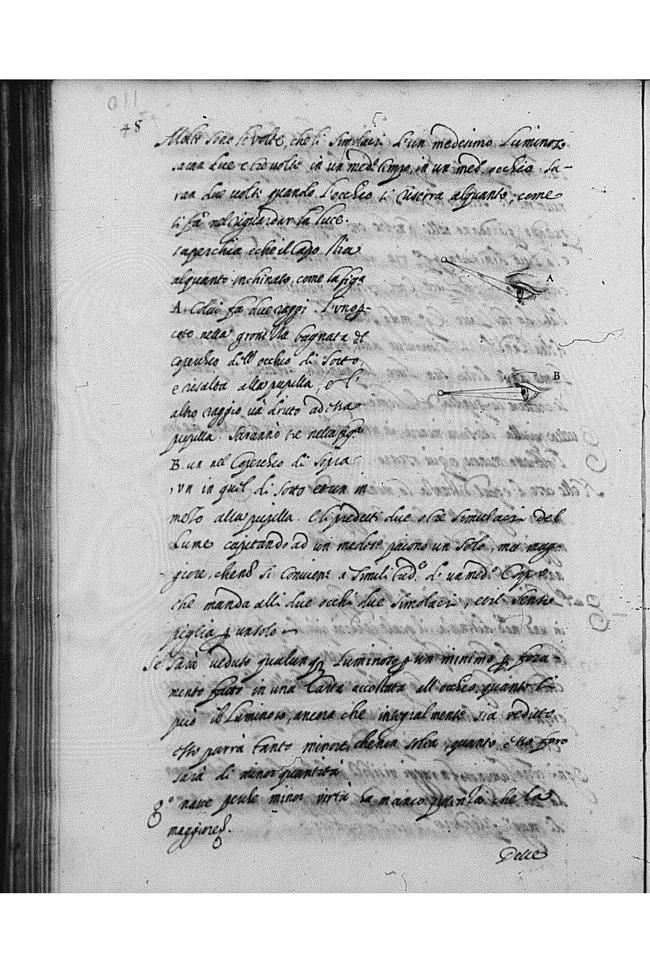 110
48
Molte sono le volte, che li simolacri d'un medesimo Luminoso
saran due e tre volte in un med.º tempo, in un med.º occhio. Sa-
ran due volte quando l'occhio si riserra alquanto, come
si fà nel riguardar la luce.
saperchia è che il capo stia
alquanto inchinato, come la fig.ª
A. Colui fa due raggi. L'uno p-
cote nella grone la bagnata del
coperchio dell'occhio di sotto,
e risalta alla pupilla, e l'
altro raggio và dritto ad essa
pupilla. Saranno tre nella fig.ª
B. un nel Coperchio di sopra
, un in quel di sotto et un in
mezo alla pupilla. E li predetti due o tre simulacri del
Lume capitando ad un med.º paiono un solo, ma mag-
giore, che nõ si conviene a similitud.º d'un med.º Corpo
che manda alli due occhi due Simolacri, et il senso
piglia p̱ un solo
Se sarà veduto qualunq̃ Luminoso p̱ un minimo fora-
mento fatto in una Carta accostata all'occhio, quanto si
può il Luminoso, ancora che integralmente sia veduto
esso parrà tanto minore che non solea, quanto esso foro
sarà di minor quantità
8º nasce perche minor virtù ha manco potentia che la
maggiore.
Delle
A
B